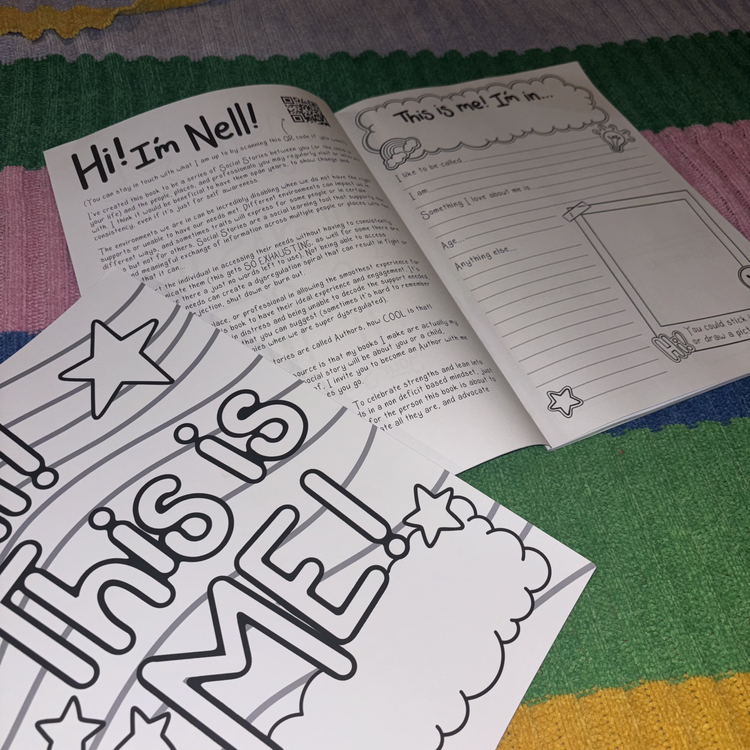 Hi! I'm Nell!
(You can stay in touch with what I am up to by scanning this QR code if you
I've created this book to be a series of Social Stories between you (or the
your life) and the people, places, and professionals you may regularly visit or
with. I think it would be beneficial to have them span years, to show change and
consistency, even if it's just for self awareness.
The environments we are in can be incredibly disabling when we do not have the
supports or unable to have our needs met! Different environments can impact us in
different ways, and sometimes traits will express for some people or in certain
but not for others. Social Stories are a social learning tool that supports the
and meaningful exchange of information across multiple people or places
that it can...
the individual in accessing their needs without having to consistently
communicate them (this gets SO EXHAUSTING, as well for some there are
there a just no words left to use). Not being able to access
needs can create a dysregulation spiral that can result in fight or
shut down or burn out.
place, or professional in allowing the smoothest experience for
book to have their ideal experience and engagement. It's
distress and being unable to decode the support needed
that you can suggest (sometimes it's hard to remember
when we are super dysregulated).
are called Authors, how COOL is that!
is that my books I make are actually my
social story will be about you or a child,
I invite you to become an Author with me
you go.
To celebrate strengths and lean into
in a non deficit based mindset, just
for the person this book is about to
all they are, and advocate
This is me! I'm in...
I like to be called
I am
Something I love about me is
Age
Anything else
Hi!
You could stick
or draw a
Hi!
This is
ME!